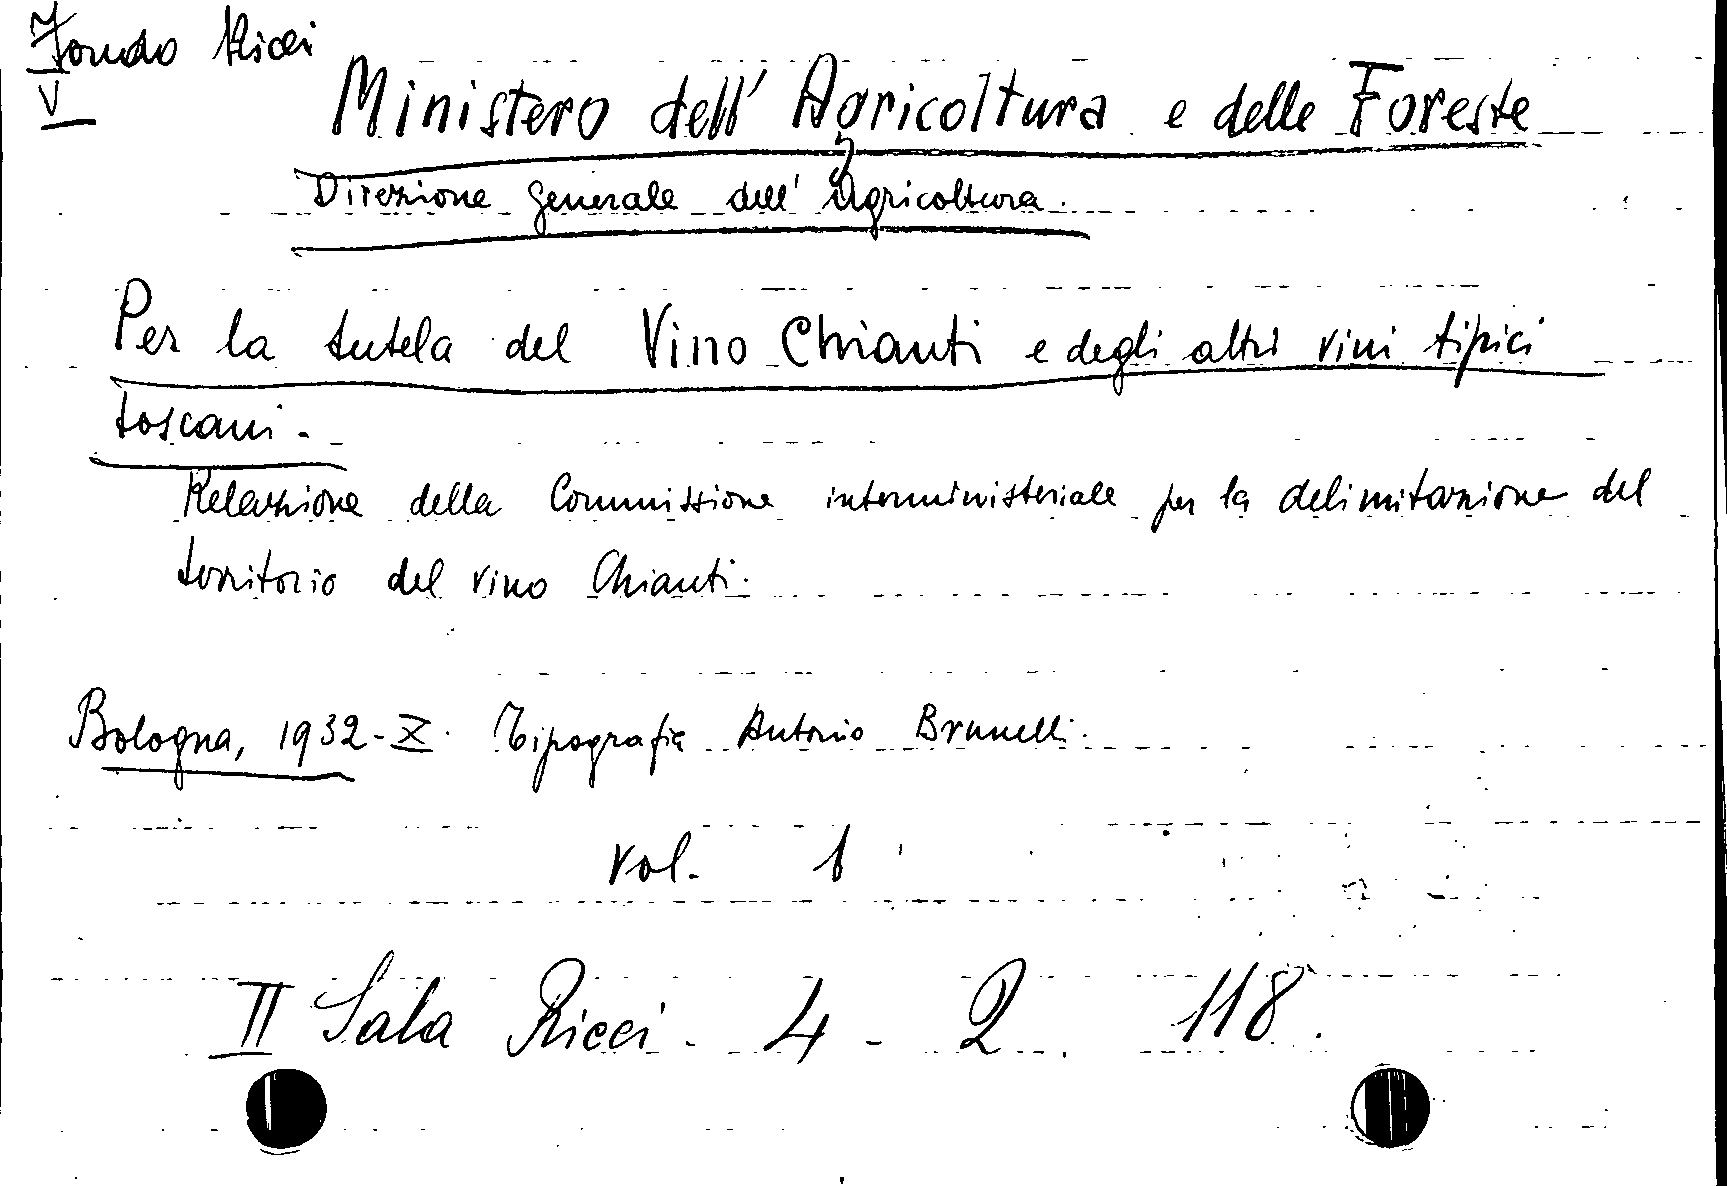 Fondo Ricci
V
Ministero dell' Agricoltura e delle Foreste
Direzione generale dell' Agricoltura.
Per la tutela del Vino Chianti e degli altri vini tipici
toscani.
Relazione della Commissione interministeriale per la delimitazione del
territorio del vino Chianti.
Bologna, 1932-X. Tipografia Antonio Brunelli.
vol. 1
II Sala Ricci - 4 - 2. 118.